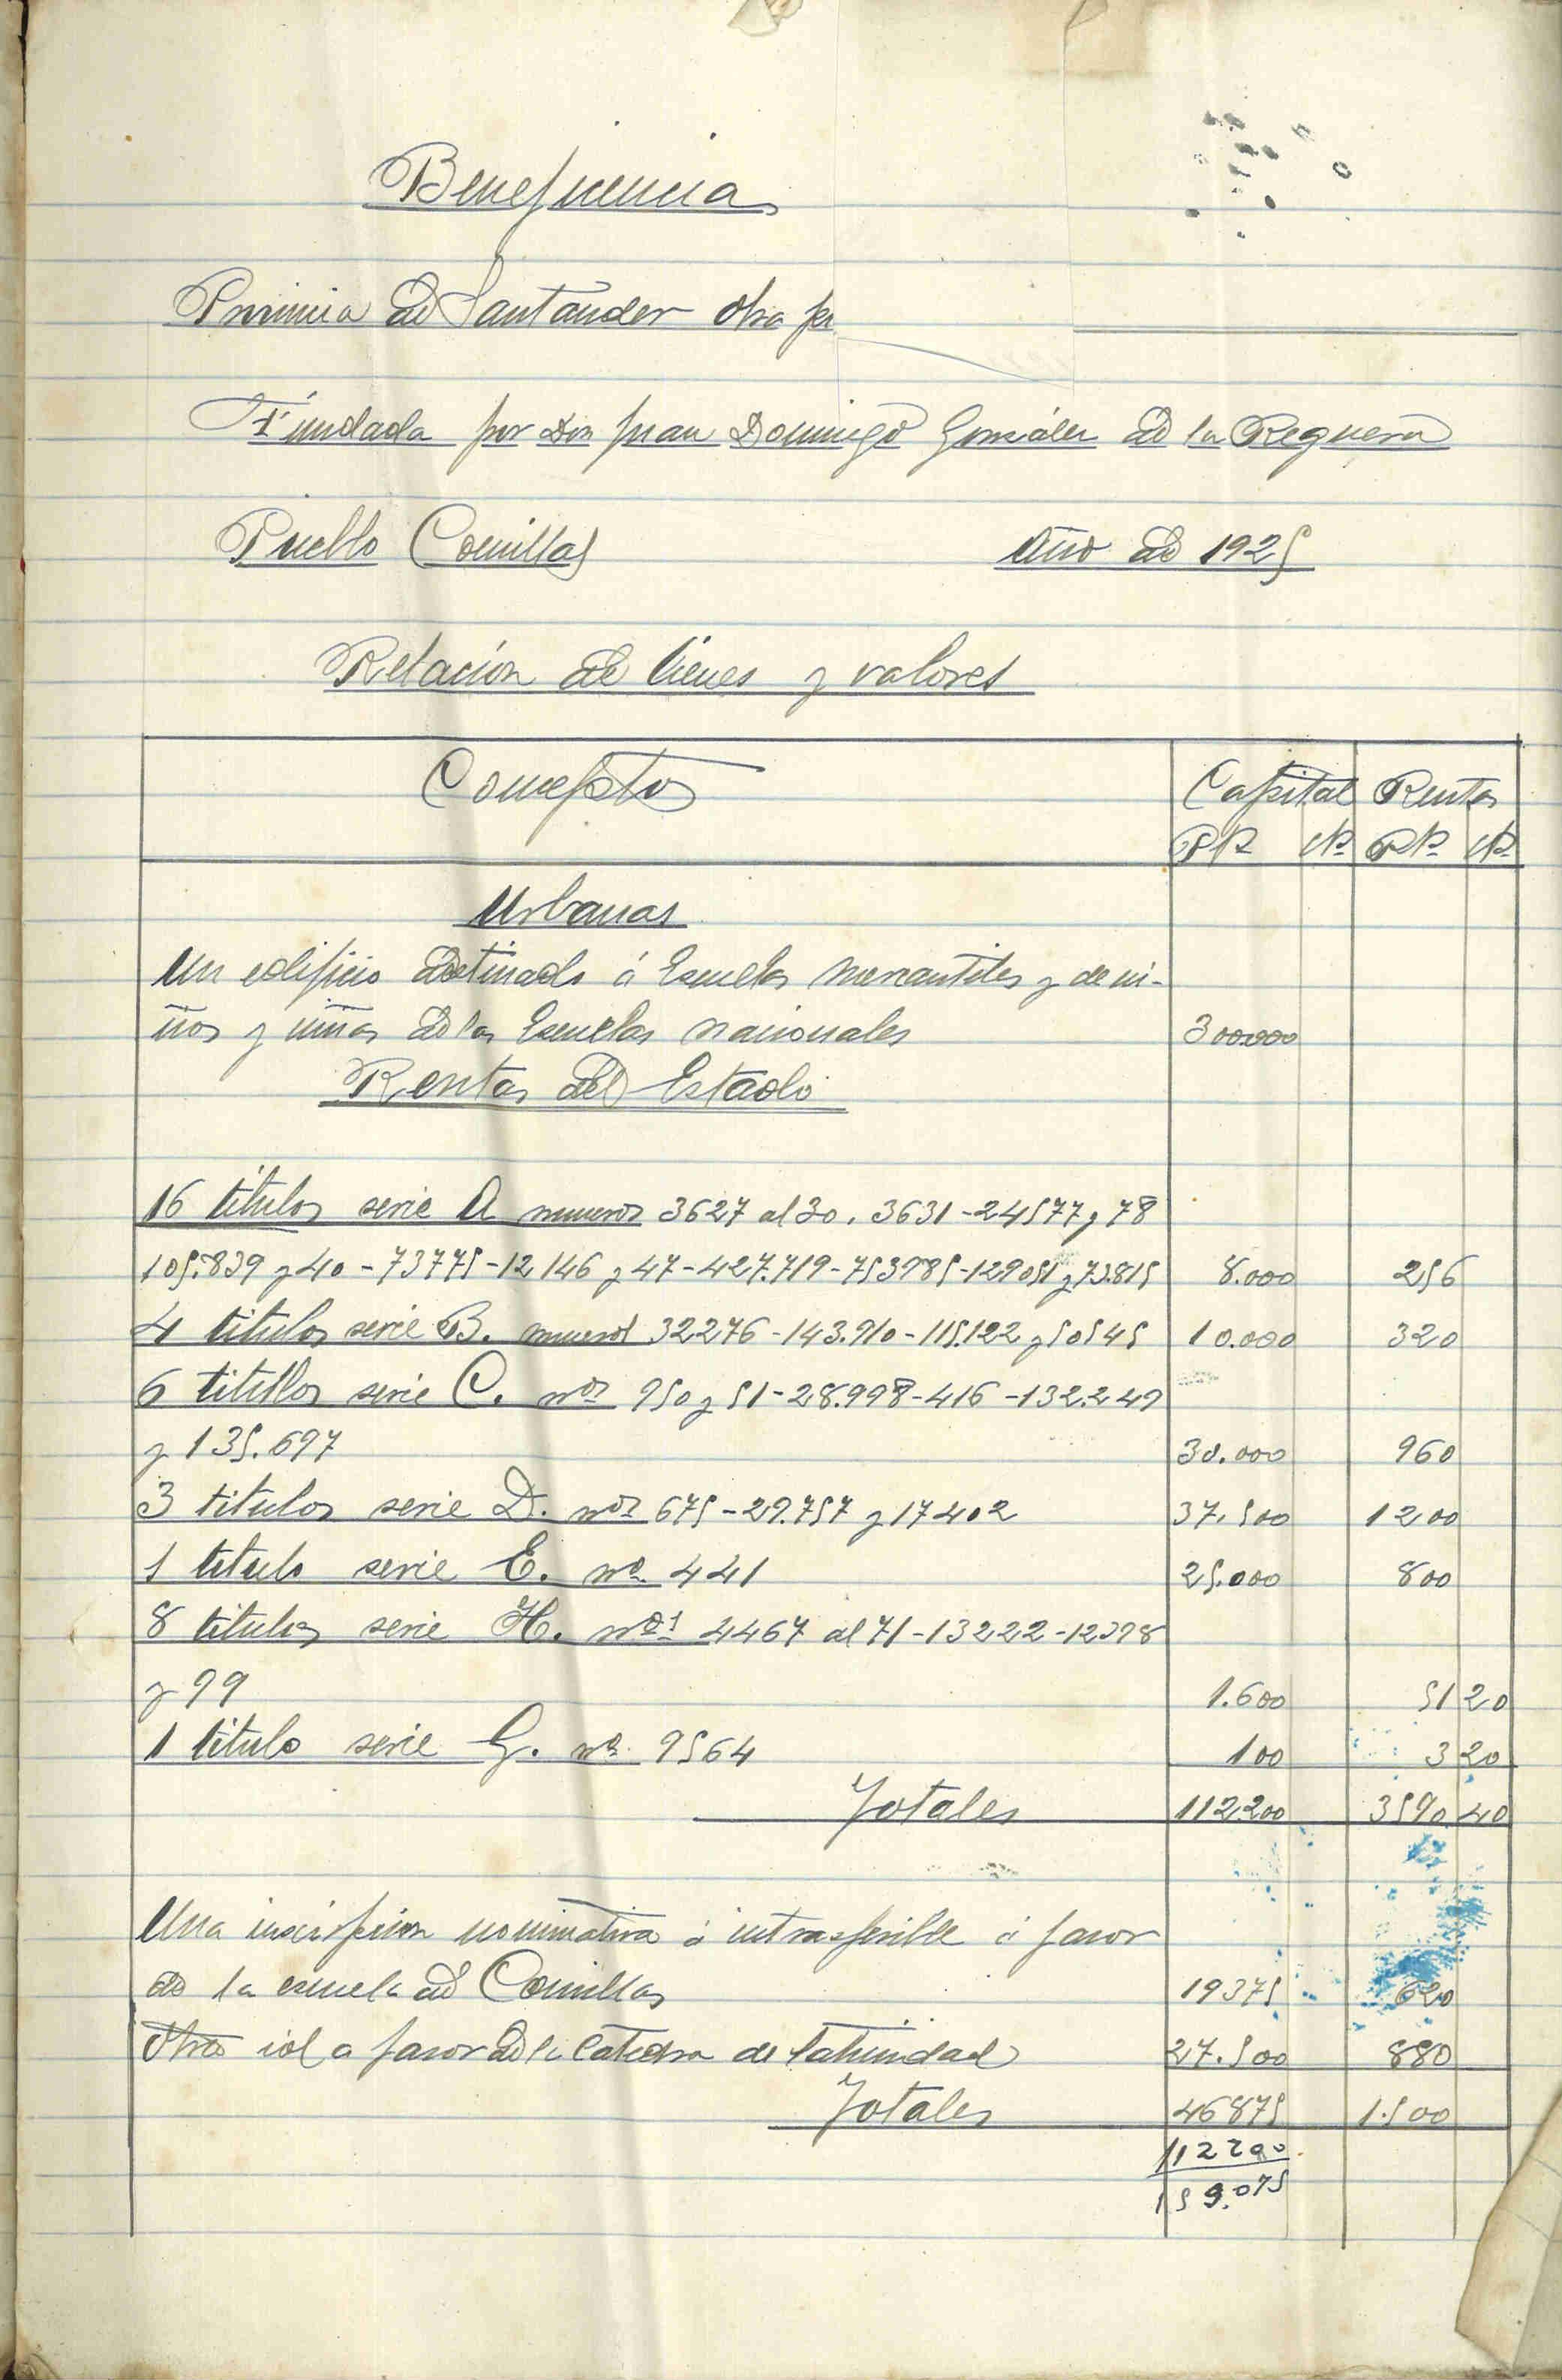 Beneficencia
Provincia de Santander obra
Fundada por Don Juan Domingo González de la Reguera
Pueblo Comillas Año de 1925
Relación de bienes y valores
Conceptos Capital Rentas
Pts Cts Pts Cts
Urbanas
Un edificio destinado á Escuelas mercantiles y de ni-
ños y niñas de las Escuelas nacionales 300.000
Rentas del Estado
16 titulos serie A numeros 3627 al 30. 3631-24577 y 78
105.839 y 40-73775-12146 y 47-427.719-753985-129051 y 73.815 8.000 256
4 titulos serie B. numeros 32276-143.910-115.122 y 50545 10.000 320
6 titulos serie C. nos 950 y 51-28.998-416-132.249
y 135.697 30.000 960
3 titulos serie D. nos 675-29.757 y 17402 37.500 1200
1 titulo serie E. no 441 25.000 800
8 titulos serie H. nos 4467 al 71-13222-12398
y 99 1.600 51 20
1 titulo serie G. no 9564 100 3 20
Totales 112.200 3590 40
Una inscripcion nominativa é intrasferible á favor
de la escuela de Comillas 19375 620
Otra id a favor de la Catedra de latinidad 27.500 880
Totales 46875 1.500
112200
159.075